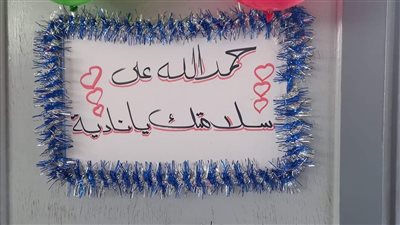 حمدالله على
سلامتك يا نادية